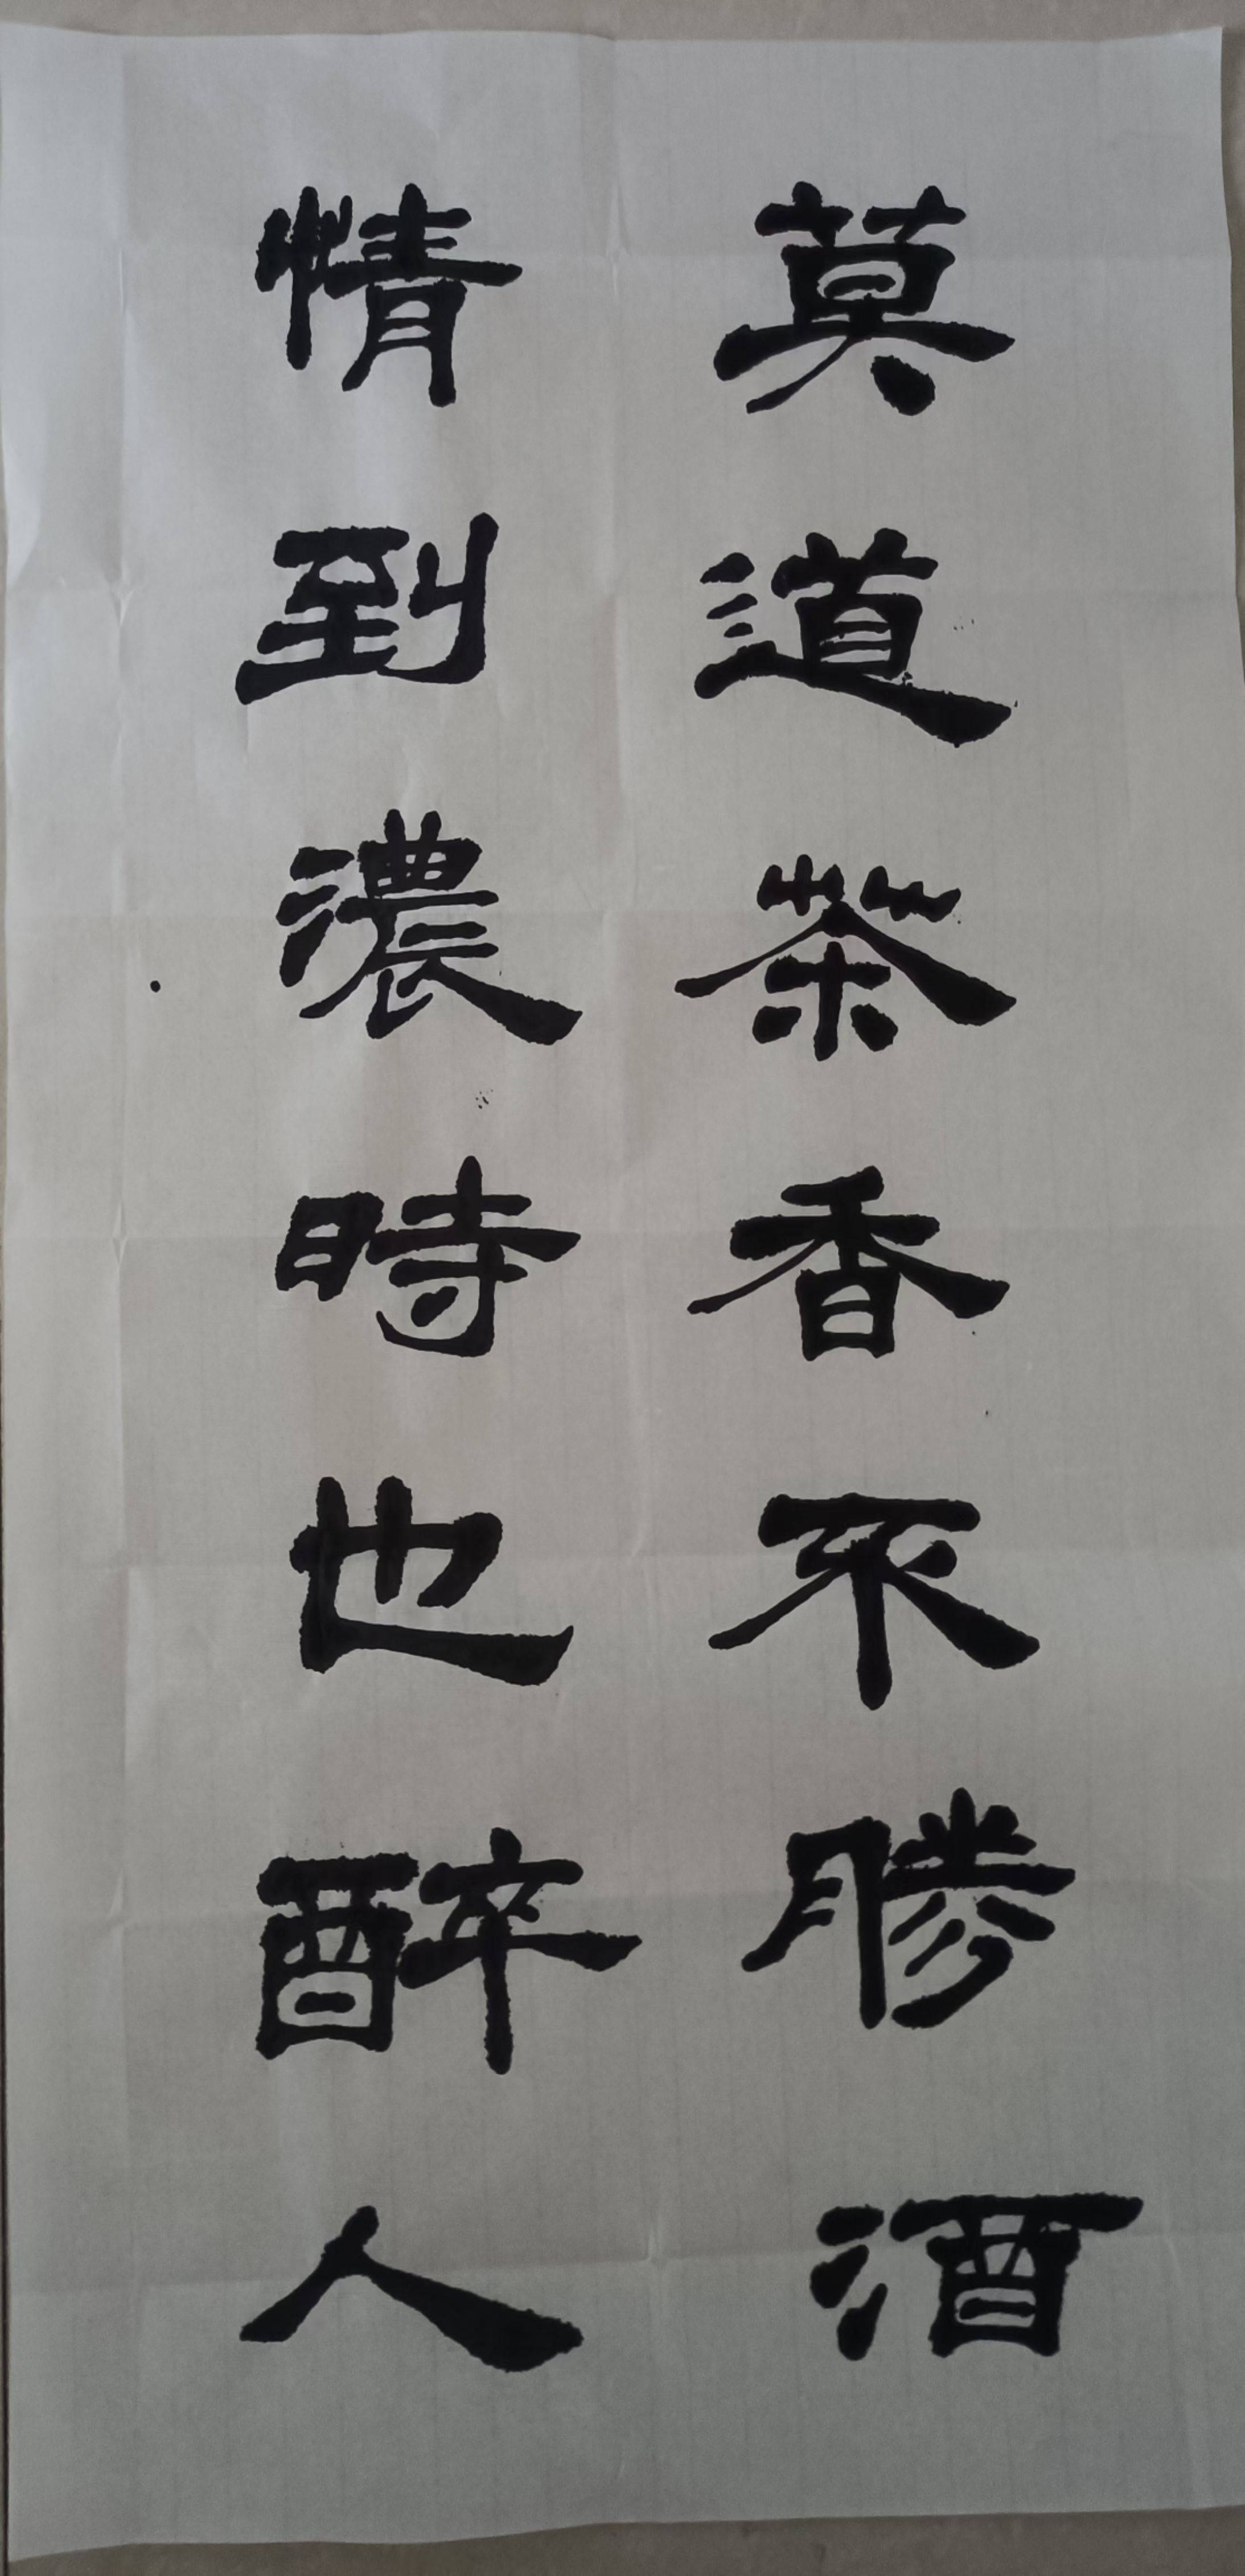 莫道茶香不勝酒
情到濃時也醉人